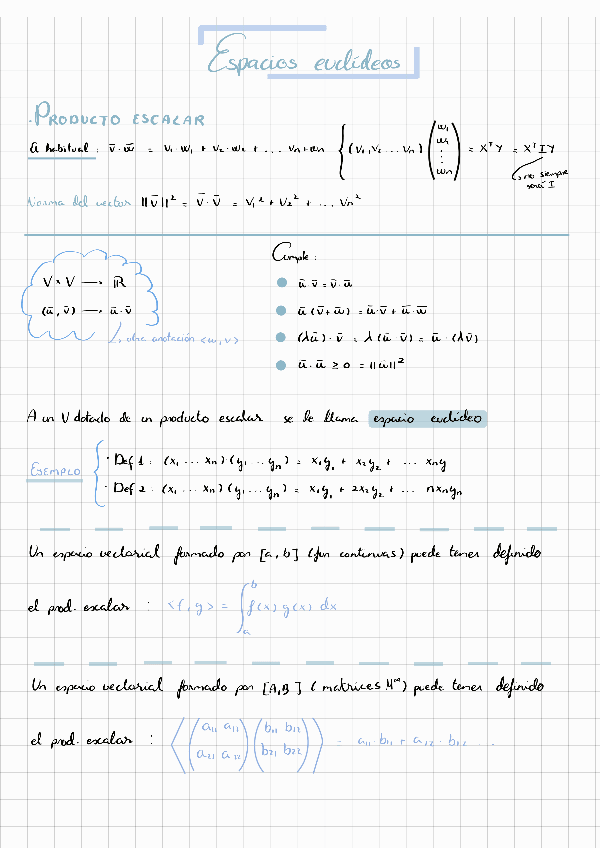 Espacios euclídeos
· PRODUCTO ESCALAR
El habitual : v̄ · w̄ = v₁ · w₁ + v₂ · w₂ + ... vₙ + wₙ { (v₁, v₂ ... vₙ) (w₁ w₂ ⋮ wₙ) = XᵀY = XᵀIY
→ no siempre
será I
Norma del vector ||v̄||² = v̄ · v̄ = v₁² + v₂² + ... vₙ²
Cumple :
V × V → ℝ
(ū, v̄) → ū · v̄
↳ otra anotación <u, v>
● ū · v̄ = v̄ · ū
● ū (v̄ + w̄) = ū · v̄ + ū · w̄
● (λū) · v̄ = λ (ū v̄) = ū · (λv̄)
● ū · ū ≥ 0 = ||ū||²
A un V dotado de un producto escalar se le llama espacio euclídeo
EJEMPLO
· Def 1 : (x₁ ... xₙ) (y₁ ... yₙ) = x₁y₁ + x₂y₂ + ... xₙy
· Def 2 : (x₁ ... xₙ) (y₁ ... yₙ) = x₁y₁ + 2x₂y₂ + ... nxₙyₙ
Un espacio vectorial formado por [a, b] (fun continuas) puede tener definido
el prod. escalar : <f, g> = ∫ₐᵇ f(x) g(x) dx
Un espacio vectorial formado por [A, B] (matrices Mᵐ) puede tener definido
el prod. escalar : ⟨(a₁₁ a₁₁ a₂₁ a₁₂) (b₁₁ b₁₂ b₂₁ b₂₂)⟩ = a₁₁ · b₁₁ + a₁₂ · b₁₂ ...